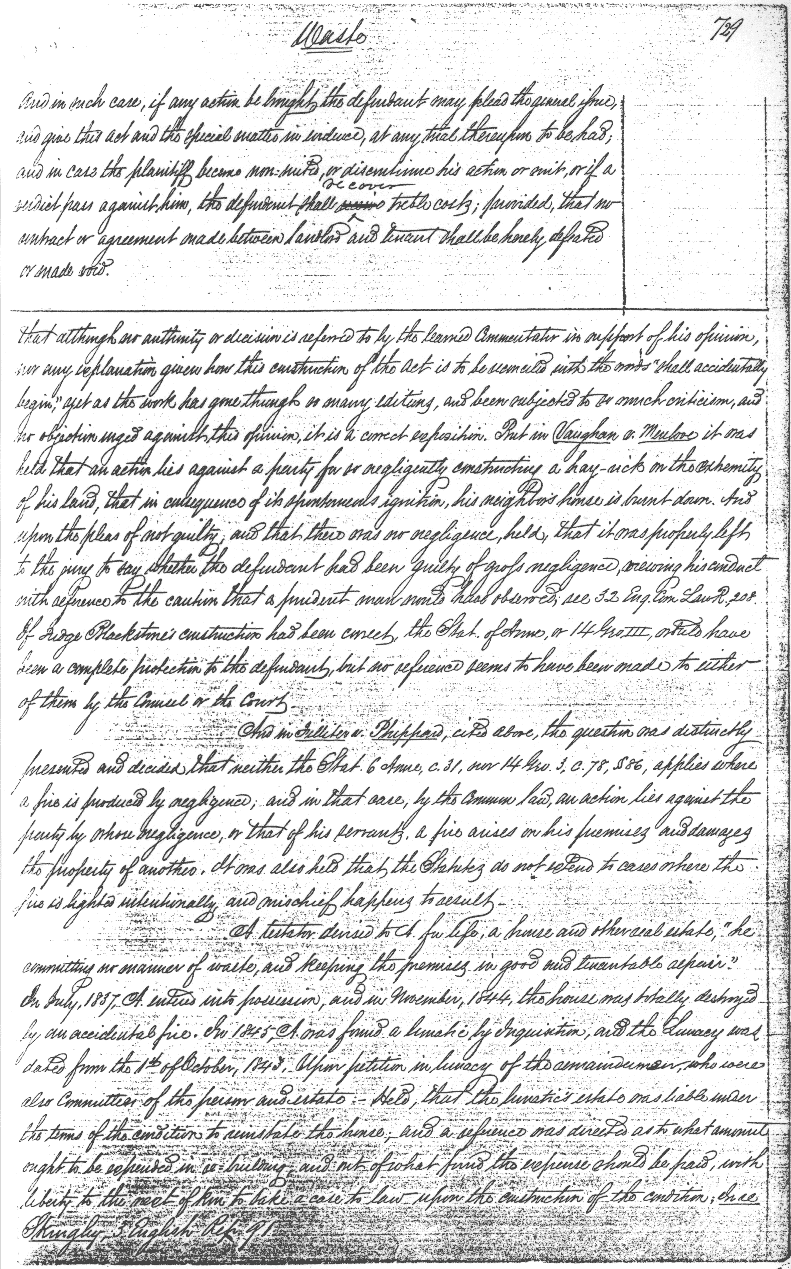 Waste
729
And in such case, if any action be brought, the defendant may plead the general issue,
and give this act and the special matter in evidence, at any trial thereupon to be had;
and in case the plaintiff become non-suited, or discontinue his action or suit, or if a
recover
verdict pass against him, the defendant shall treble costs; provided, that no
contract or agreement made between landlord and tenant shall be hereby defeated
or made void.
that although no authority or decision is referred to by the learned Commentator in support of his opinion,
nor any explanation given how this construction of the act is to be reconciled with the words "shall accidentally
begin," yet as the work has gone through so many editions, and been subjected to so much criticism, and
no objection urged against this opinion, it is a correct exposition. But in Vaughan v. Menlove it was
held that an action lies against a party for so negligently constructing a hay-rick on the extremity
of his land, that in consequence of its spontaneous ignition, his neighbor's house is burnt down. And
upon the pleas of not guilty, and that there was no negligence, held, that it was properly left
to the jury to say whether the defendant had been guilty of gross negligence, viewing his conduct
with reference to the caution that a prudent man would have observed; see 32 Eng. Com. Law R. 208.
If Judge Blackstone's construction had been correct, the Stat. of Anne, or 14 Geo III, would have
been a complete protection to the defendant, but no reference seems to have been made to either
of them by the Council or the Court.
And in Filliter v. Phippard, cited above, the question was distinctly
presented and decided that neither the Stat. 6 Anne, c. 31, nor 14 Geo. 3, c. 78, § 86, applies where
a fire is produced by negligence; and in that case, by the Common law, an action lies against the
party by whose negligence, or that of his servants, a fire arises on his premises and damages
the property of another. It was also held that the Statutes do not extend to cases where the
fire is lighted intentionally, and mischief happens to result.
A testator devised to A. for life, a house and other real estate, "he
committing no manner of waste, and keeping the premises in good and tenantable repair."
In July, 1837, A. entered into possession, and in November, 1844, the house was totally destroyed
by an accidental fire. In 1845, A. was found a lunatic by Inquisition, and the Lunacy was
dated from the 1st of October, 1843. Upon petition in lunacy of the remaindermen, who were
also Committees of the person and estate:- Held, that the lunatic's estate was liable under
the terms of the condition to reinstate the house; and a reference was directed as to what amount
ought to be expended in re-building, and out of what fund the expense should be paid, with
liberty to the next of kin to take a case to law upon the construction of the condition; In re
Skingley, 3 English Rep. 91.